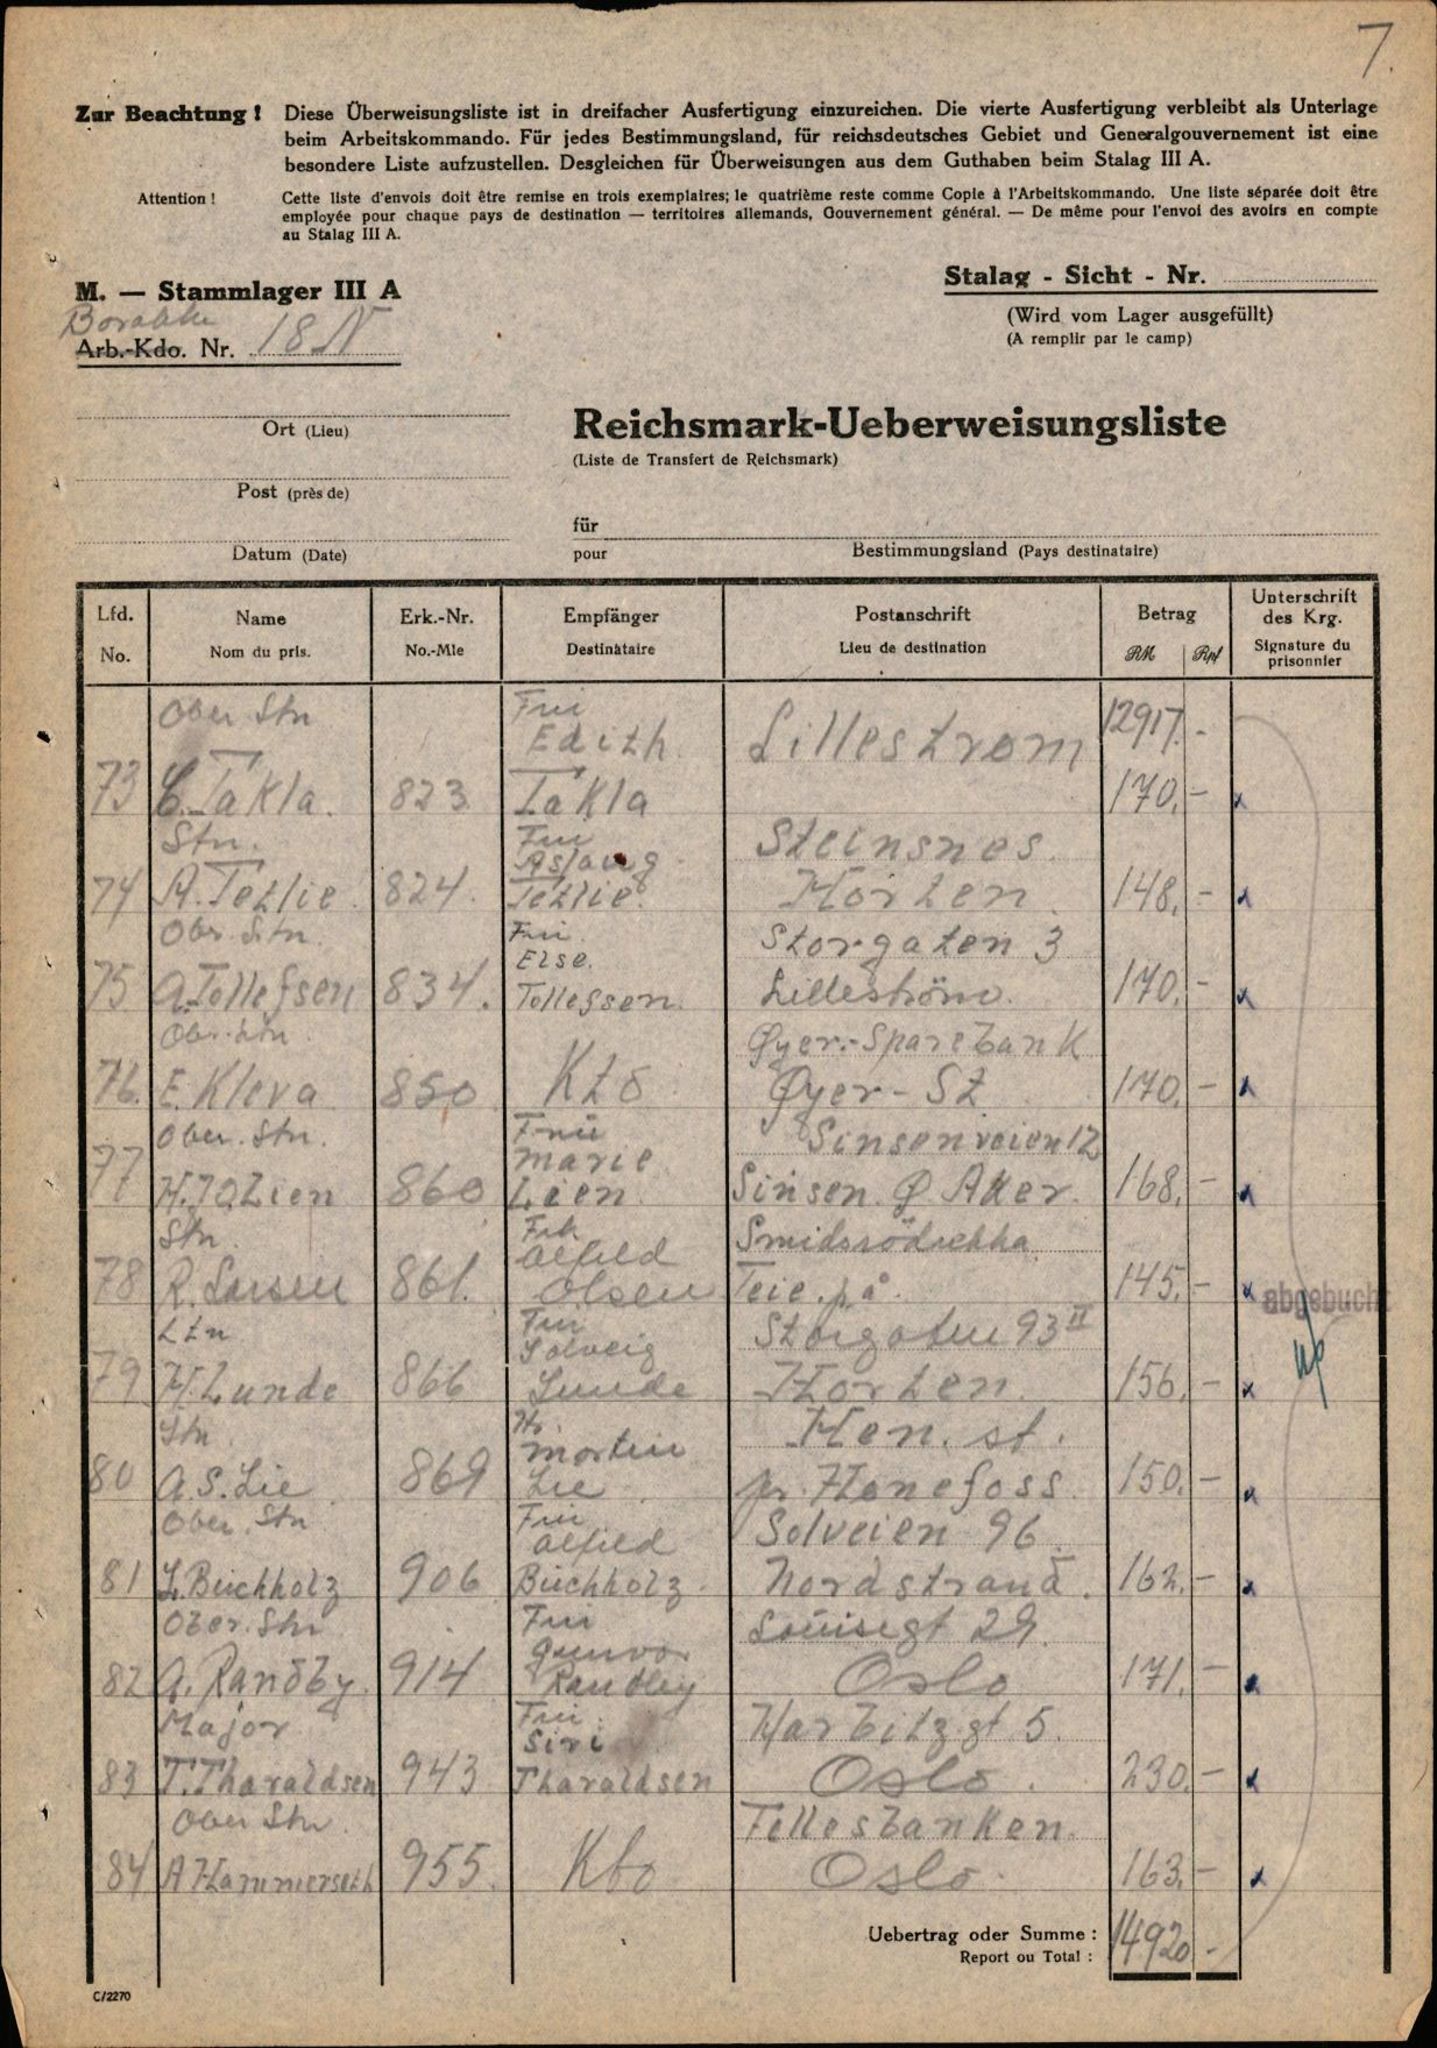 7.
Zur Beachtung ! Diese Überweisungsliste ist in dreifacher Ausfertigung einzureichen. Die vierte Ausfertigung verbleibt als Unterlage
beim Arbeitskommando. Für jedes Bestimmungsland, für reichsdeutsches Gebiet und Generalgouvernement ist eine
besondere Liste aufzustellen. Desgleichen für Überweisungen aus dem Guthaben beim Stalag III A.
Attention ! Cette liste d'envois doit être remise en trois exemplaires; le quatrième reste comme Copie à l'Arbeitskommando. Une liste séparée doit être
employée pour chaque pays de destination — territoires allemands, Gouvernement général. — De même pour l'envoi des avoirs en compte
au Stalag III A.
Stalag - Sicht - Nr.
(Wird vom Lager ausgefüllt)
(A remplir par le camp)
M. — Stammlager III A
Arb.-Kdo. Nr. 18 N
Ort (Lieu)
Post (près de)
Datum (Date)
Reichsmark-Ueberweisungsliste
(Liste de Transfert de Reichsmark)
für
pour Bestimmungsland (Pays destinataire)
Lfd. No. Name Nom du pris. Erk.-Nr. No.-Mle Empfänger Destinataire Postanschrift Lieu de destination Betrag RM Rpf Unterschrift des Krg. Signature du prisonnier
Ober Stn Fru 12917.-
Edith Lillestrom
73 C. Takla. 823 Takla 170.- x
Stn. Fru Steinsnes.
Aslaug
74 A. Tezlie. 824. Tezlie. Horten. 148.- x
Obr. Stn. Fru. Storgaten 3
Else.
75 A. Tollefsen 834. Tollefsen. Lilleström. 170.- x
Øyer-Sparebank
76. E. Kleva 850 Kto Øyer - St. 170.- x
Ober. Stn. Frü Sinsenveien 12
Marie
77 H. J. O. Lien 860 Lien. Sinsen. Ø. Aker. 168.- x
Stn. Frk.
Alfild
78 R. Larsen 861. Olsen Teie. på. 145.- x
abgebucht
Ltn Fru Storgaten 93 II
Solveig
79 H. Lunde 866 Lunde Horten. 156.- x
Stn. Hr. Hen. st.
Morten
80 A. S. Lie 869 Lie pr. Hønefoss. 150.- x
Ober. Stn Fru Solveien 96.
Alfild
81 L. Buchholz 906 Buchholz. Nordstrand. 162.- x
Ober. Stn Fru Louisegt 29.
Gunvor
82 A. Randby. 914 Randby Oslo 171.- x
Major Fru. Harbitz.gt 5.
Siri
83 T. Tharaldsen 943 Tharaldsen Oslo. 230.- x
Ober Stn. Fellesbanken.
84 A Hammerseth 955. Kto Oslo. 163.- x
Uebertrag oder Summe : 14920.-
Report ou Total :
C/2270